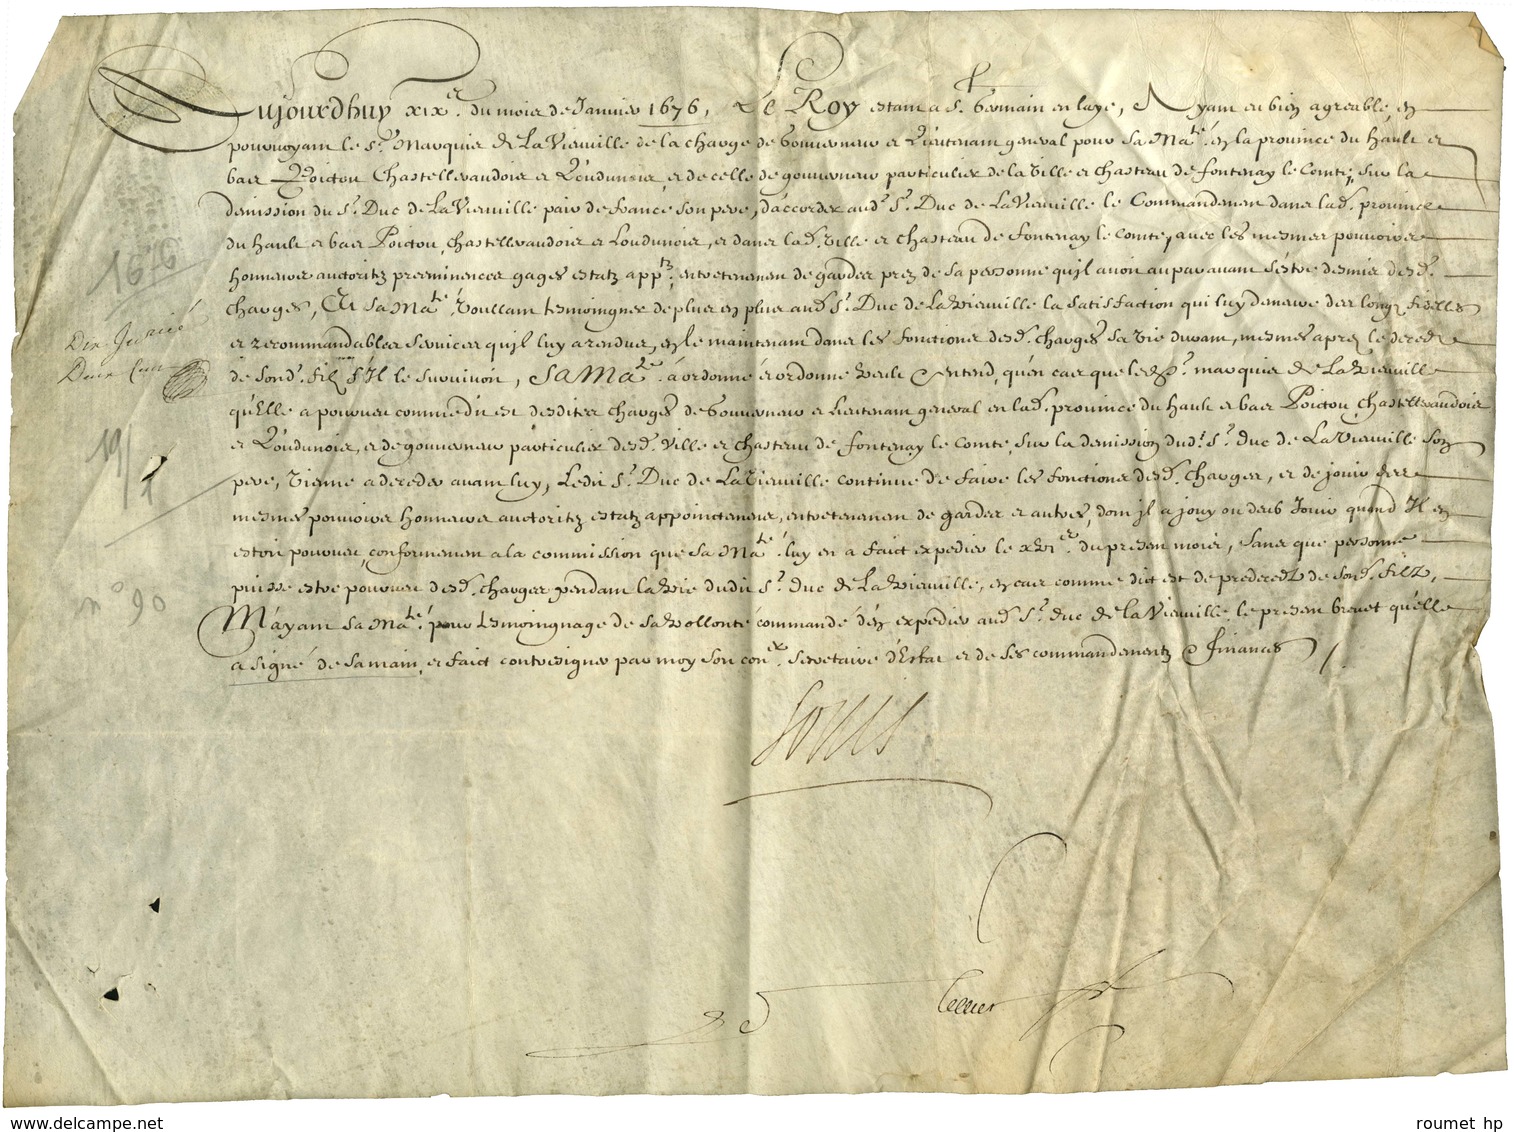 Aujourdhuy xixe. du mois de Janvier 1676, Le Roy estant a St. Germain en laye, Ayant eu bien agreable, en
pourvoyant le Sr. Marquis de La Vieuville de la charge de Gouverneur et Lieutenant general pour Sa Maté. en la province du hault et
bas Poictou Chastelleraudois et Loudunois, et de celle de gouverneur particulier de la Ville et chasteau de fontenay le Comte, sur la
demission du Sr. Duc de La Vieuville pair de france son pere, d'accorder aud. Sr. Duc de La Vieuville le Commandement dans lad. province
du hault et bas Poictou, chastelleraudois et Loudunois, et dans lad. Ville et chasteau de fontenay le comte, avec les mesmes pouvoirs
honneurs auctoritez preeminences gages estatz apptz. entretenement de gardes prez de sa personne qu'il avoit auparavant s'estre desmis desd.
charges, Et sa Maté. voullant tesmoigner de plus en plus aud. Sr. Duc de La Vieuville la satisfaction qui luy demeure des longs fidelles
et recommandables services qu'il luy a rendus, en le maintenant dans les fonctions desd. charges sa vie durant, mesmes apres le deceds
de sond. filz s'Il le survivoit, SA MAté. a ordonné et ordonne veult et entend, qu'en cas que led. Sr. marquis de La Vieuville
qu'Elle a pourveu comme dit est desdites charges de Gouverneur et Lieutenant general en lad. province du hault et bas Poictou, chastelleraudois
et Loudunois, et de gouverneur particulier desd. Ville et chasteau de fontenay le comte, sur la demission dud. Sr. duc de La Vieuville son
pere, vienne a deceder avant luy, Ledit Sr. Duc de La Vieuville continue de faire les fonctions desd. charges, et de jouir des
mesmes pouvoirs honneurs auctoritez estatz appointemens, entretenement de gardes et autres, dont il a jouy ou deub Jouir quand Il en
estoit pourveu, conformement a la commission que sa Maté. luy en a faict expedier le xvie. du present mois, sans que personne
puisse estre pourveu desd. charges pendant la vie dudit Sr. duc de La Vieuville, en cas comme dict est de predeceds de sond. filz,
M'ayant sa Maté. pour tesmoignage de sa vollonté commandé d'en expedier aud. Sr. duc de la Vieuville le present brevet qu'elle
a signé de sa main, et faict contresigner par moy son conser. secretaire d'Estat et de ses commandements et finances
Louis
Le Tellier
1676
19/1
n° 90
www.delcampe.net
roumet hp